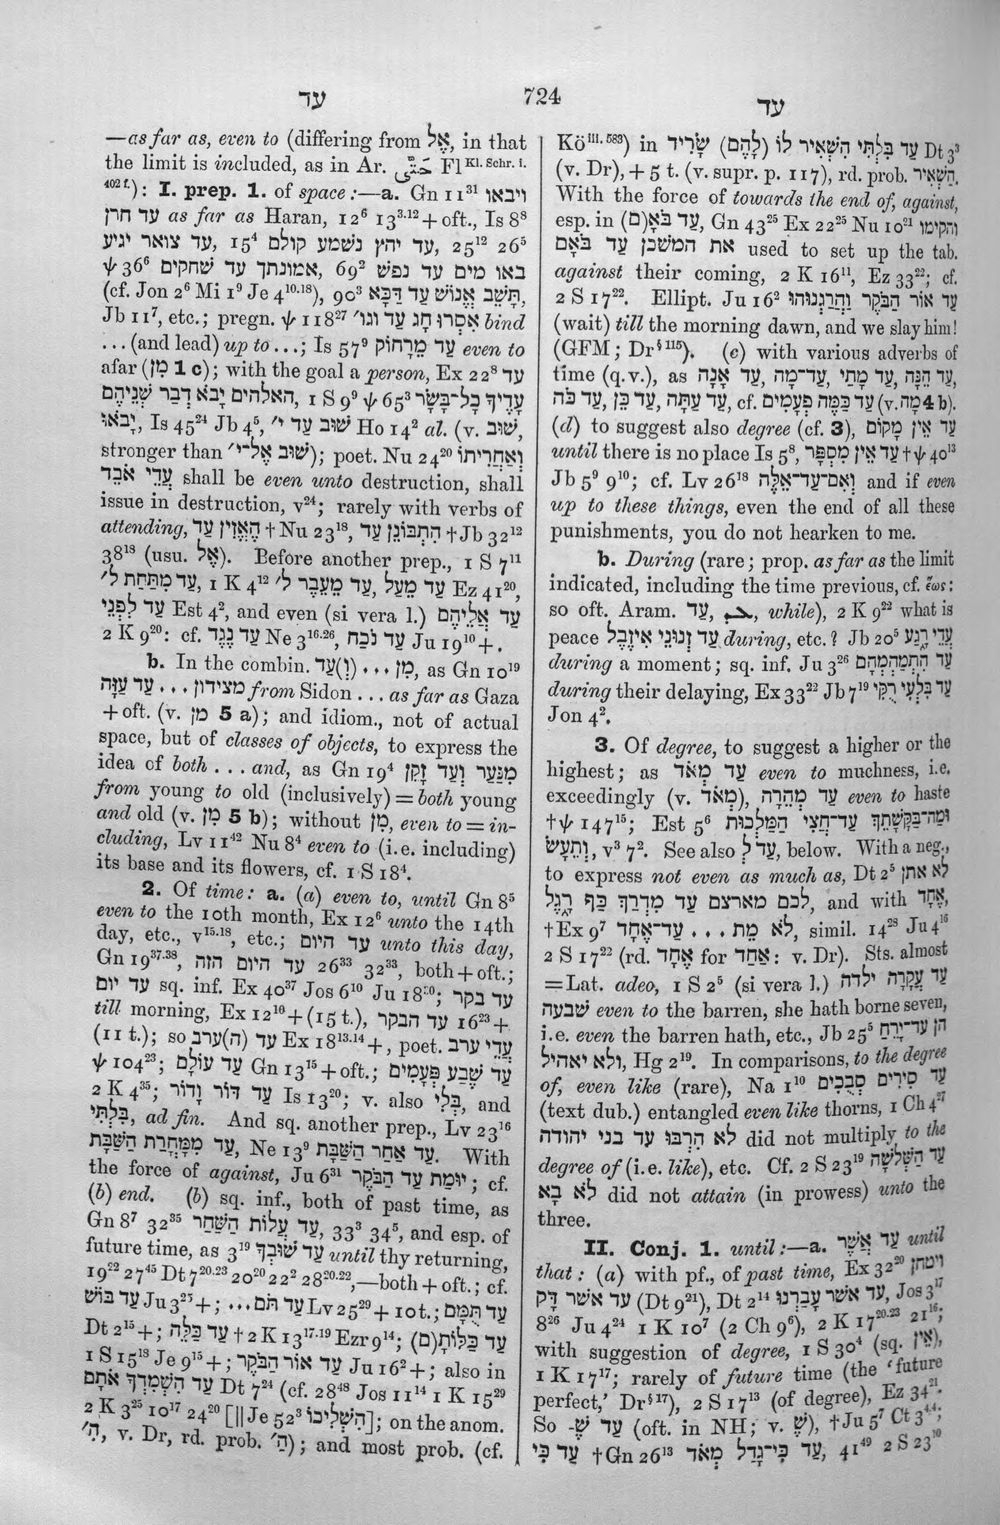 עד
724
עד
—as far as, even to (differing from אֶל, in that
the limit is included, as in Ar. حَتَّى Fl Kl. Schr. i.
402 f.): I. prep. 1. of space:—a. Gn 11³¹ ויבאו
עד חרן as far as Haran, 12⁶ 13³·¹² + oft., Is 8⁸
עד צואר יגיע, 15⁴ עד יהץ נשמע קולם, 25¹² 26⁵
ψ 36⁶ אמונתך עד שחקים, 69² באו מים עד נפש
(cf. Jon 2⁶ Mi 1⁹ Je 4¹⁰·¹⁸), 90³ תָּשֵׁב אֱנוֹשׁ עַד דַּכָּא,
Jb 11⁷, etc.; pregn. ψ 118²⁷ אִסְרוּ חָג עַד וגו׳ bind
... (and lead) up to ...; Is 57⁹ עַד מֵרָחוֹק even to
afar (מִן 1 c); with the goal a person, Ex 22⁸ עַד
האלהים יָבֹא דְּבַר שְׁנֵיהֶם, 1 S 9⁹ ψ 65³ עָדֶיךָ כָּל־בָּשָׂר
יָבֹאוּ, Is 45²⁴ Jb 4⁵, שׁוּב עַד י׳ Ho 14² al. (v. שׁוּב,
stronger than שׁוּב אֶל־י׳); poet. Nu 24²⁰ וְאַחֲרִיתוֹ
עֲדֵי אֹבֵד shall be even unto destruction, shall
issue in destruction, v²⁴; rarely with verbs of
attending, הֶאֱזִין עַד † Nu 23¹⁸, הִתְבּוֹנֵן עַד † Jb 32¹²
38¹⁸ (usu. אֶל). Before another prep., 1 S 7¹¹
עַד מִתַּחַת לְ׳, 1 K 4¹² עַד מֵעֵבֶר לְ׳, עַד מֵעַל Ez 41²⁰,
עַד לִפְנֵי Est 4², and even (si vera l.) עַד אֲלֵיהֶם
2 K 9²⁰: cf. עַד נֶגֶד Ne 3¹⁶·²⁶, עַד נֹכַח Ju 19¹⁰ +.
b. In the combin. מִן ... (וְ)עַד, as Gn 10¹⁹
מצידון ... עַד עַזָּה from Sidon ... as far as Gaza
+ oft. (v. מִן 5 a); and idiom., not of actual
space, but of classes of objects, to express the
idea of both ... and, as Gn 19⁴ מִנַּעַר וְעַד זָקֵן
from young to old (inclusively) = both young
and old (v. מִן 5 b); without מִן, even to = in-
cluding, Lv 11⁴² Nu 8⁴ even to (i.e. including)
its base and its flowers, cf. 1 S 18⁴.
2. Of time: a. (a) even to, until Gn 8⁵
even to the 10th month, Ex 12⁶ unto the 14th
day, etc., v¹⁵·¹⁸, etc.; עד היום unto this day,
Gn 19³⁷·³⁸, עד היום הזה 26³³ 32³³, both + oft.;
עד יום sq. inf. Ex 40³⁷ Jos 6¹⁰ Ju 18³⁰; עד בקר
till morning, Ex 12¹⁰ + (15 t.), עד הבקר 16²³ +
(11 t.); so עד (ה)ערב Ex 18¹³·¹⁴ +, poet. עֲדֵי ערב
ψ 104²³; עַד עוֹלָם Gn 13¹⁵ + oft.; עַד שֶׁבַע פְּעָמִים
2 K 4³⁵; עַד דּוֹר וָדוֹר Is 13²⁰; v. also בְּלִי, and
בִּלְתִּי, ad fin. And sq. another prep., Lv 23¹⁶
עַד מִמָּחֳרַת הַשַּׁבָּת, Ne 13⁹ עַד אַחַר הַשַּׁבָּת. With
the force of against, Ju 6³¹ יוּמַת עַד הַבֹּקֶר; cf.
(b) end. (b) sq. inf., both of past time, as
Gn 8⁷ 32²⁵ עַד עֲלוֹת הַשַּׁחַר, 33³ 34⁵, and esp. of
future time, as 3¹⁹ עַד שׁוּבְךָ until thy returning,
19²² 27⁴⁵ Dt 7²⁰·²³ 20²⁰ 22² 28²⁰·²²,—both + oft.; cf.
עַד בּוֹשׁ Ju 3²⁵ +; ... עַד תֹּם Lv 25²⁹ + 10 t.; עַד תֻּמָּם
Dt 2¹⁵ +; עַד כַּלֵּה † 2 K 13¹⁷·¹⁹ Ezr 9¹⁴; עַד כַּלּוֹתָ(ם)
1 S 15¹⁸ Je 9¹⁵ +; עַד אוֹר הַבֹּקֶר Ju 16² +; also in
עַד הִשָּׁמְדָךְ אֹתָם Dt 7²⁴ (cf. 28⁴⁸ Jos 11¹⁴ 1 K 15²⁹
2 K 3²⁵ 10¹⁷ 24²⁰ [|| Je 52³ הִשְׁלִיכוֹ]; on the anom.
הִ׳, v. Dr, rd. prob. הַ׳); and most prob. (cf.
Kö iii. 583) in עַד בִּלְתִּי הִשְׁאִיר לוֹ (לָהֶם) שָׂרִיד Dt 3³
(v. Dr), + 5 t. (v. supr. p. 117), rd. prob. הַשְׁאִיר.
With the force of towards the end of, against,
esp. in עַד בֹּאָ(ם), Gn 43²⁵ Ex 22²⁵ Nu 10²¹ והקימו
את המשכן עַד בֹּאָם used to set up the tab.
against their coming, 2 K 16¹¹, Ez 33²²; cf.
2 S 17²². Ellipt. Ju 16² עַד אוֹר הַבֹּקֶר וַהֲרַגְנוּהוּ
(wait) till the morning dawn, and we slay him!
(GFM; Dr§ 115). (c) with various adverbs of
time (q.v.), as עַד הֵנָּה, עַד מָתַי, עַד־מָה, עַד אָנָה,
עַד עַתָּה, עַד כֵּן, עַד כֹּה, cf. עַד כַּמֶּה פְעָמִים (v. מָה 4 b).
(d) to suggest also degree (cf. 3), עַד אֵין מָקוֹם
until there is no place Is 5⁸, עַד אֵין מִסְפָּר † ψ 40¹³
Jb 5⁹ 9¹⁰; cf. Lv 26¹⁸ וְאִם־עַד־אֵלֶּה and if even
up to these things, even the end of all these
punishments, you do not hearken to me.
b. During (rare; prop. as far as the limit
indicated, including the time previous, cf. ἕως:
so oft. Aram. עַד, ܥܕ, while), 2 K 9²² what is
peace עַד זְנוּנֵי אִיזֶבֶל during, etc.? Jb 20⁵ עֲדֵי רָגַע
during a moment; sq. inf. Ju 3²⁶ עַד הִתְמַהְמְהָם
during their delaying, Ex 33²² Jb 7¹⁹ עַד בִּלְעִי רֻקִּי
Jon 4².
3. Of degree, to suggest a higher or the
highest; as עַד מְאֹד even to muchness, i.e.
exceedingly (v. מְאֹד), עַד מְהֵרָה even to haste
† ψ 147¹⁵; Est 5⁶ וּמַה־בַּקָּשָׁתֵךְ עַד־חֲצִי הַמַּלְכוּת
וְתֵעָשׂ, v³ 7². See also עַד לְ, below. With a neg.,
to express not even as much as, Dt 2⁵ לא אתן
לכם מארצם עַד מִדְרַךְ כַּף רָגֶל, and with אֶחָד,
† Ex 9⁷ לֹא מֵת ... עַד־אֶחָד, simil. 14²⁸ Ju 4¹⁶
2 S 17²² (rd. אֶחָד for אַחַד: v. Dr). Sts. almost
= Lat. adeo, 1 S 2⁵ (si vera l.) עַד עֲקָרָה ילדה
שבעה even to the barren, she hath borne seven,
i.e. even the barren hath, etc., Jb 25⁵ הן עַד־יָרֵחַ
ולא יאהיל, Hg 2¹⁹. In comparisons, to the degree
of, even like (rare), Na 1¹⁰ עַד סִירִים סְבֻכִים
(text dub.) entangled even like thorns, 1 Ch 4²⁷
לא הִרְבּוּ עד בני יהודה did not multiply to the
degree of (i.e. like), etc. Cf. 2 S 23¹⁹ עַד הַשְּׁלֹשָׁה
לֹא בָא did not attain (in prowess) unto the
three.
II. Conj. 1. until:—a. עַד אֲשֶׁר until
that: (a) with pf., of past time, Ex 32²⁰ ויטחן
עַד אשר דָּק (Dt 9²¹), Dt 2¹⁴ עד אשר עָבַרְנוּ, Jos 3¹⁷
8²⁶ Ju 4²⁴ 1 K 10⁷ (2 Ch 9⁶), 2 K 17²⁰·²³ 21¹⁶;
with suggestion of degree, 1 S 30⁴ (sq. אֵין),
1 K 17¹⁷; rarely of future time (the ‘future
perfect,’ Dr§ 17), 2 S 17¹³ (of degree), Ez 34²¹.
So עַד שֶׁ- (oft. in NH; v. שֶׁ), † Ju 5⁷ Ct 3⁴·⁴;
עַד כִּי † Gn 26¹³ עַד כִּי־גָדַל מְאֹד, 41⁴⁹ 2 S 23¹⁰